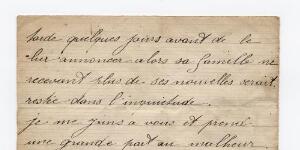 tarde quelques jours avant de le
leur annoncer alors sa famille ne
recevant plus de ses nouvelles serait
restée dans l'inquiétude.
je me junis à vous et prend
une grande part au malheur